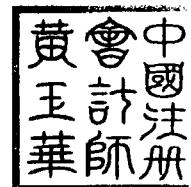 中國注册
會計師
黄玉華